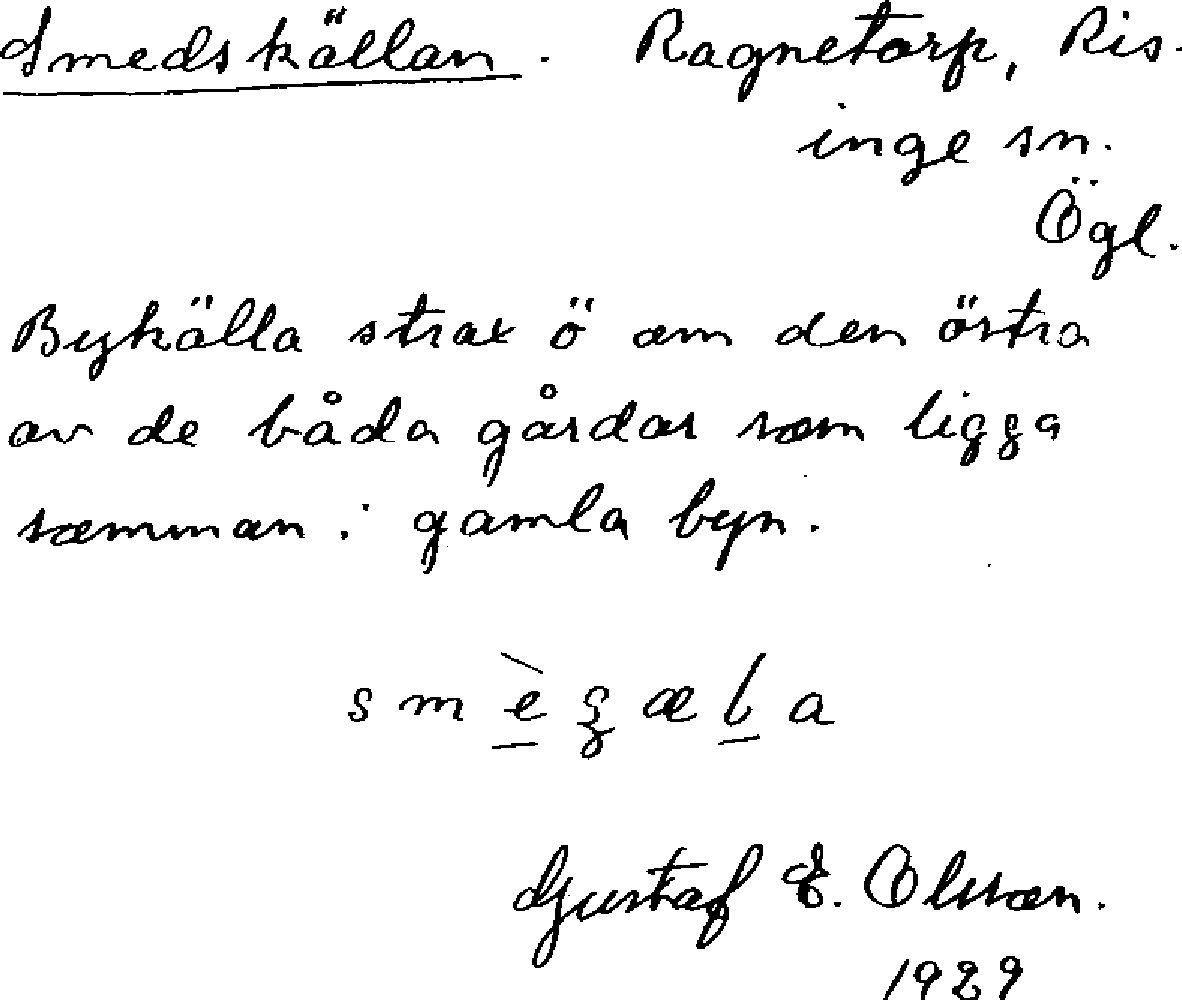 Smedskällan. Ragnetorp, Ris-
inge sn.
Ögl.
Bykälla strax ö om den östra
av de båda gårdar som ligga
samman i gamla byn.
Gustaf E. Olsson.
1929